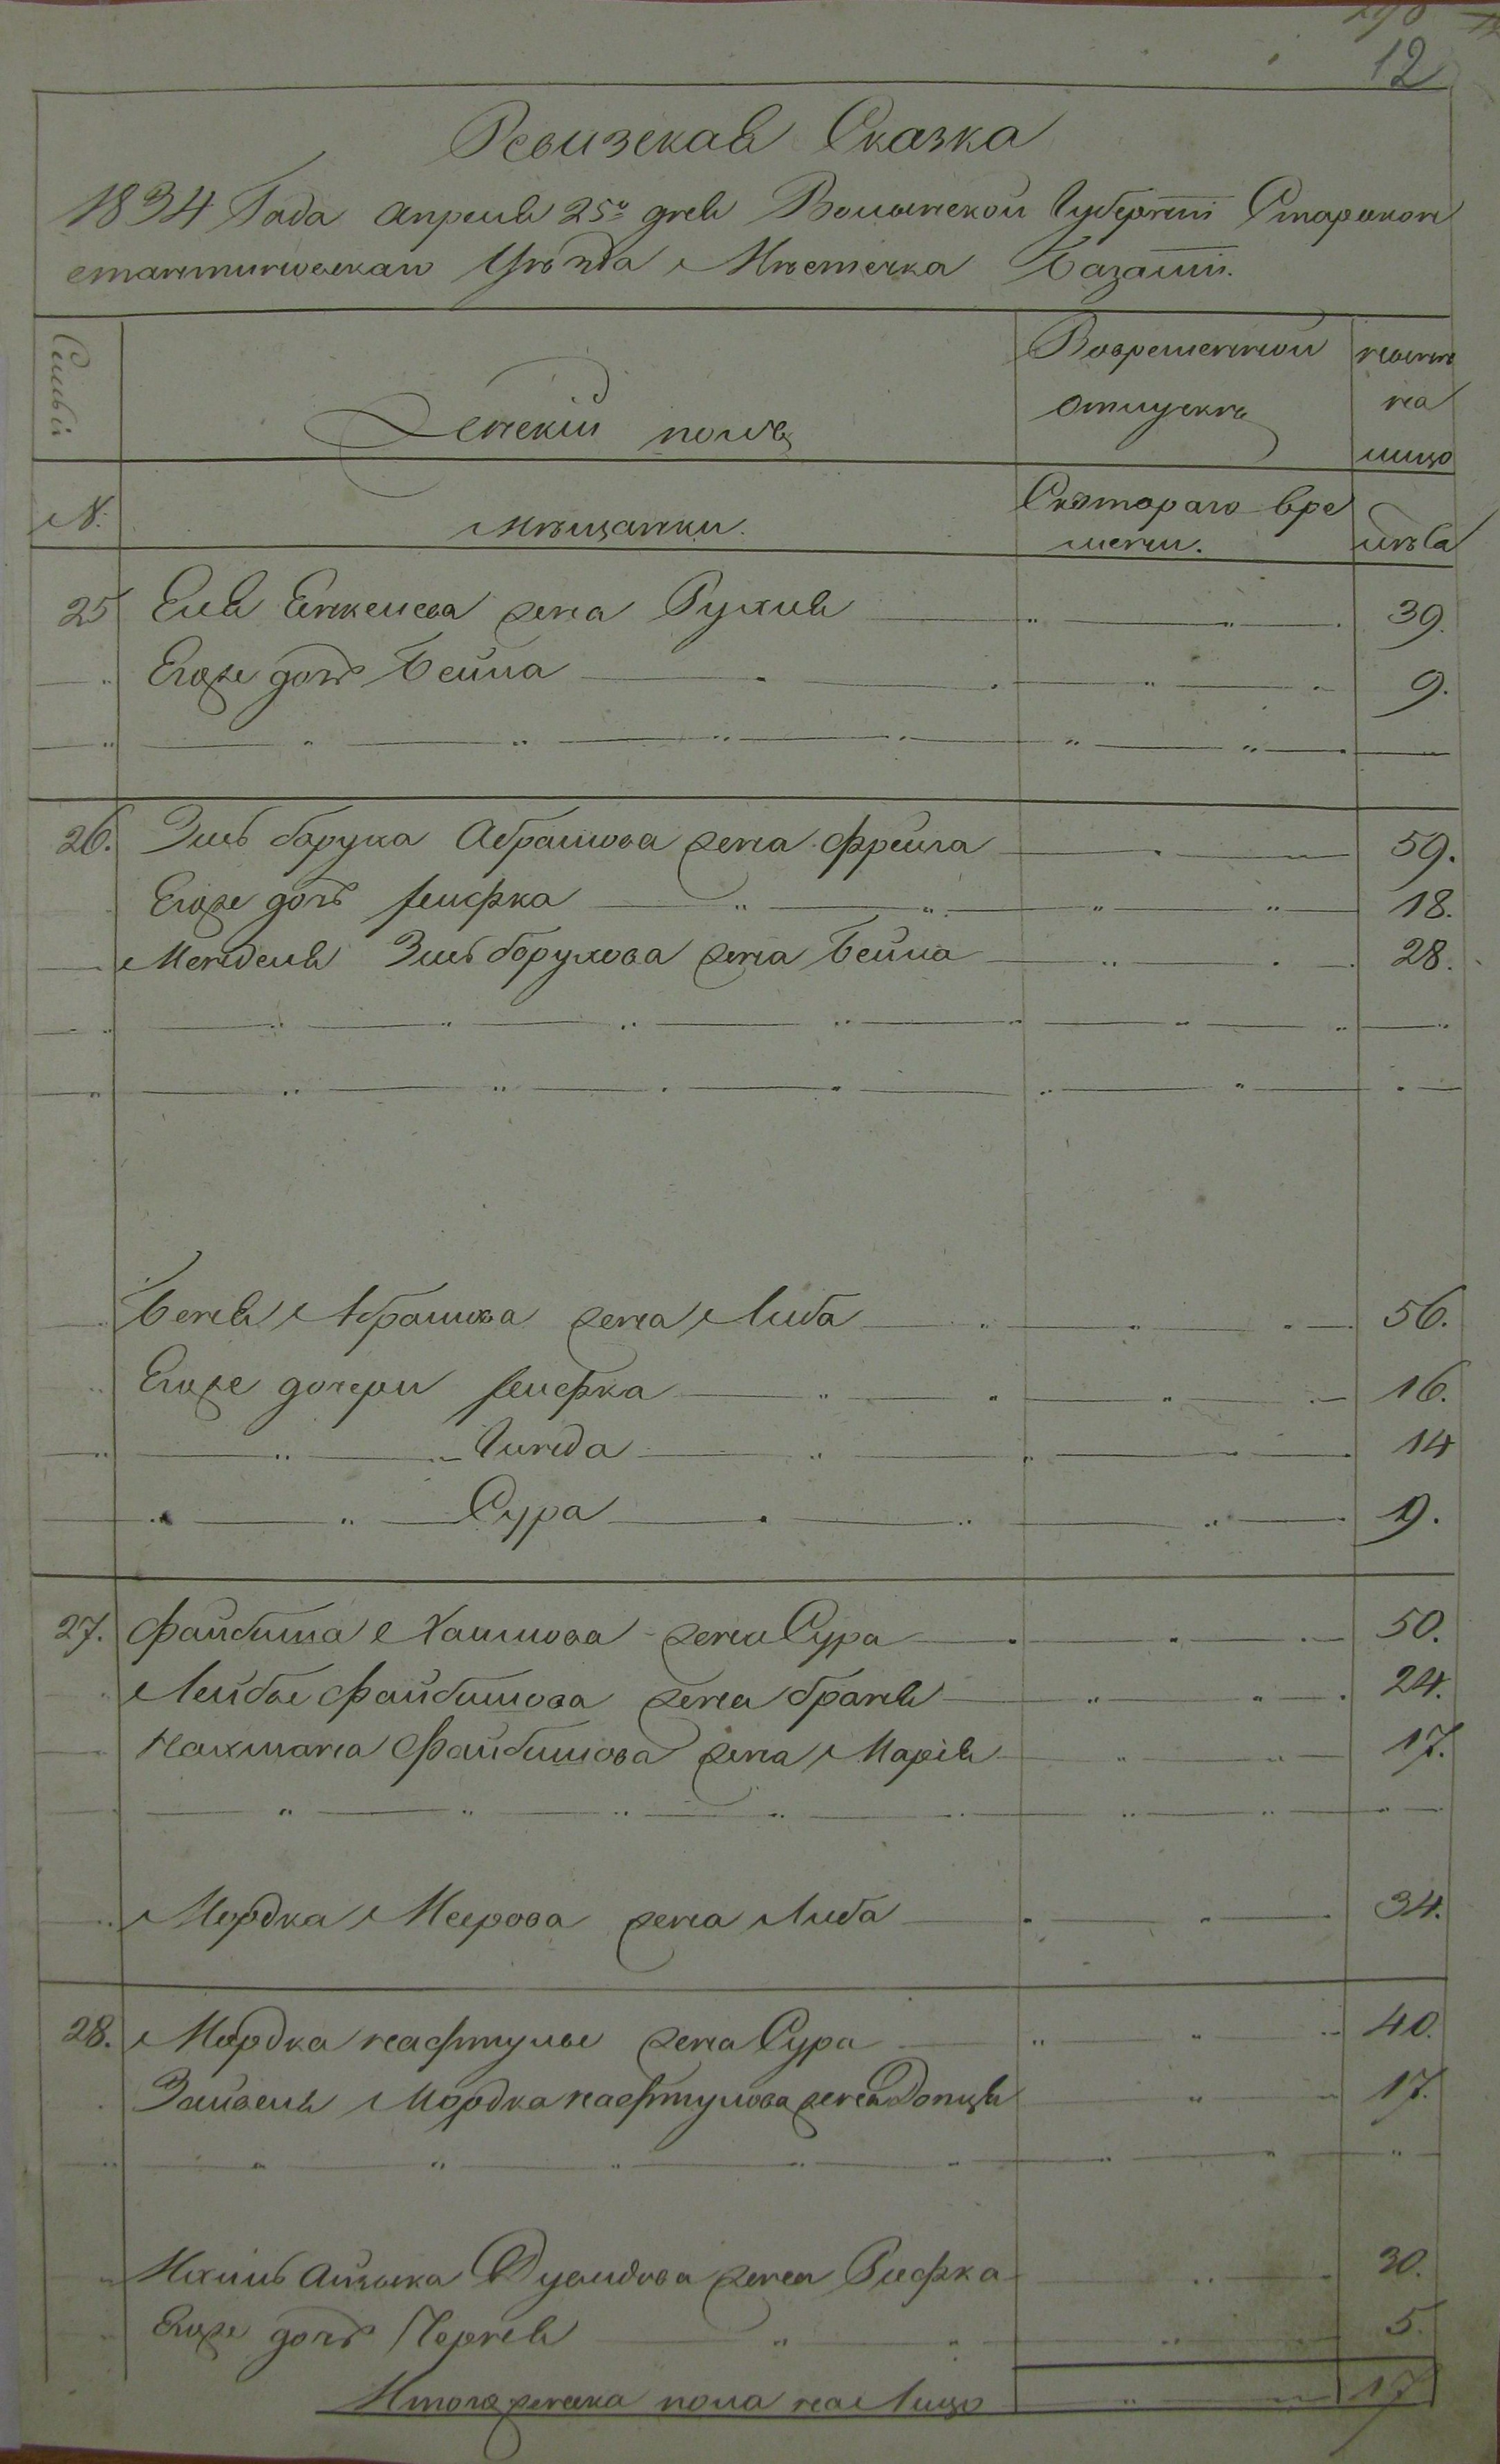 12
Ревизская Сказка
1834 Года апреля 25го дня Волынской Губернiи Старокон
стантиновскаго Уѣзда Мѣстечка Базалiи.
Семьи
Женскiй полъ
Вовременной отлуцкѣ
нынѣ на лицо
N.
мѣщанки.
Скотораго вре мени.
лѣта
25 Еля Енкелева жена Рухля 39.
Егоже дочь Бейла 9.
26. Эль баруха Абрамова жена фрейга 59.
Егоже дочь Ривфка 18.
Менделя Эльборухова жена Бейла 28.
Беня Абрамова жена Либа 56.
Егоже дочери Ривфка 16.
Гинда 14
Сура 9.
27. Файбиша Хаимова жена Сура 50.
Лейбы Файбишова жена браня 24.
Нахмана Файбишова жена Марiя 17.
Мордка Меерова жена Либа 34.
28. Мордка нафтулы жена Сура 40.
Зайвеля Мордка нафтулова жена Допця 17.
Ихиль айзыка Дувидова жена Рифка 30.
Егоже дочь Черня 5.
Итого женска пола на Лицо 17